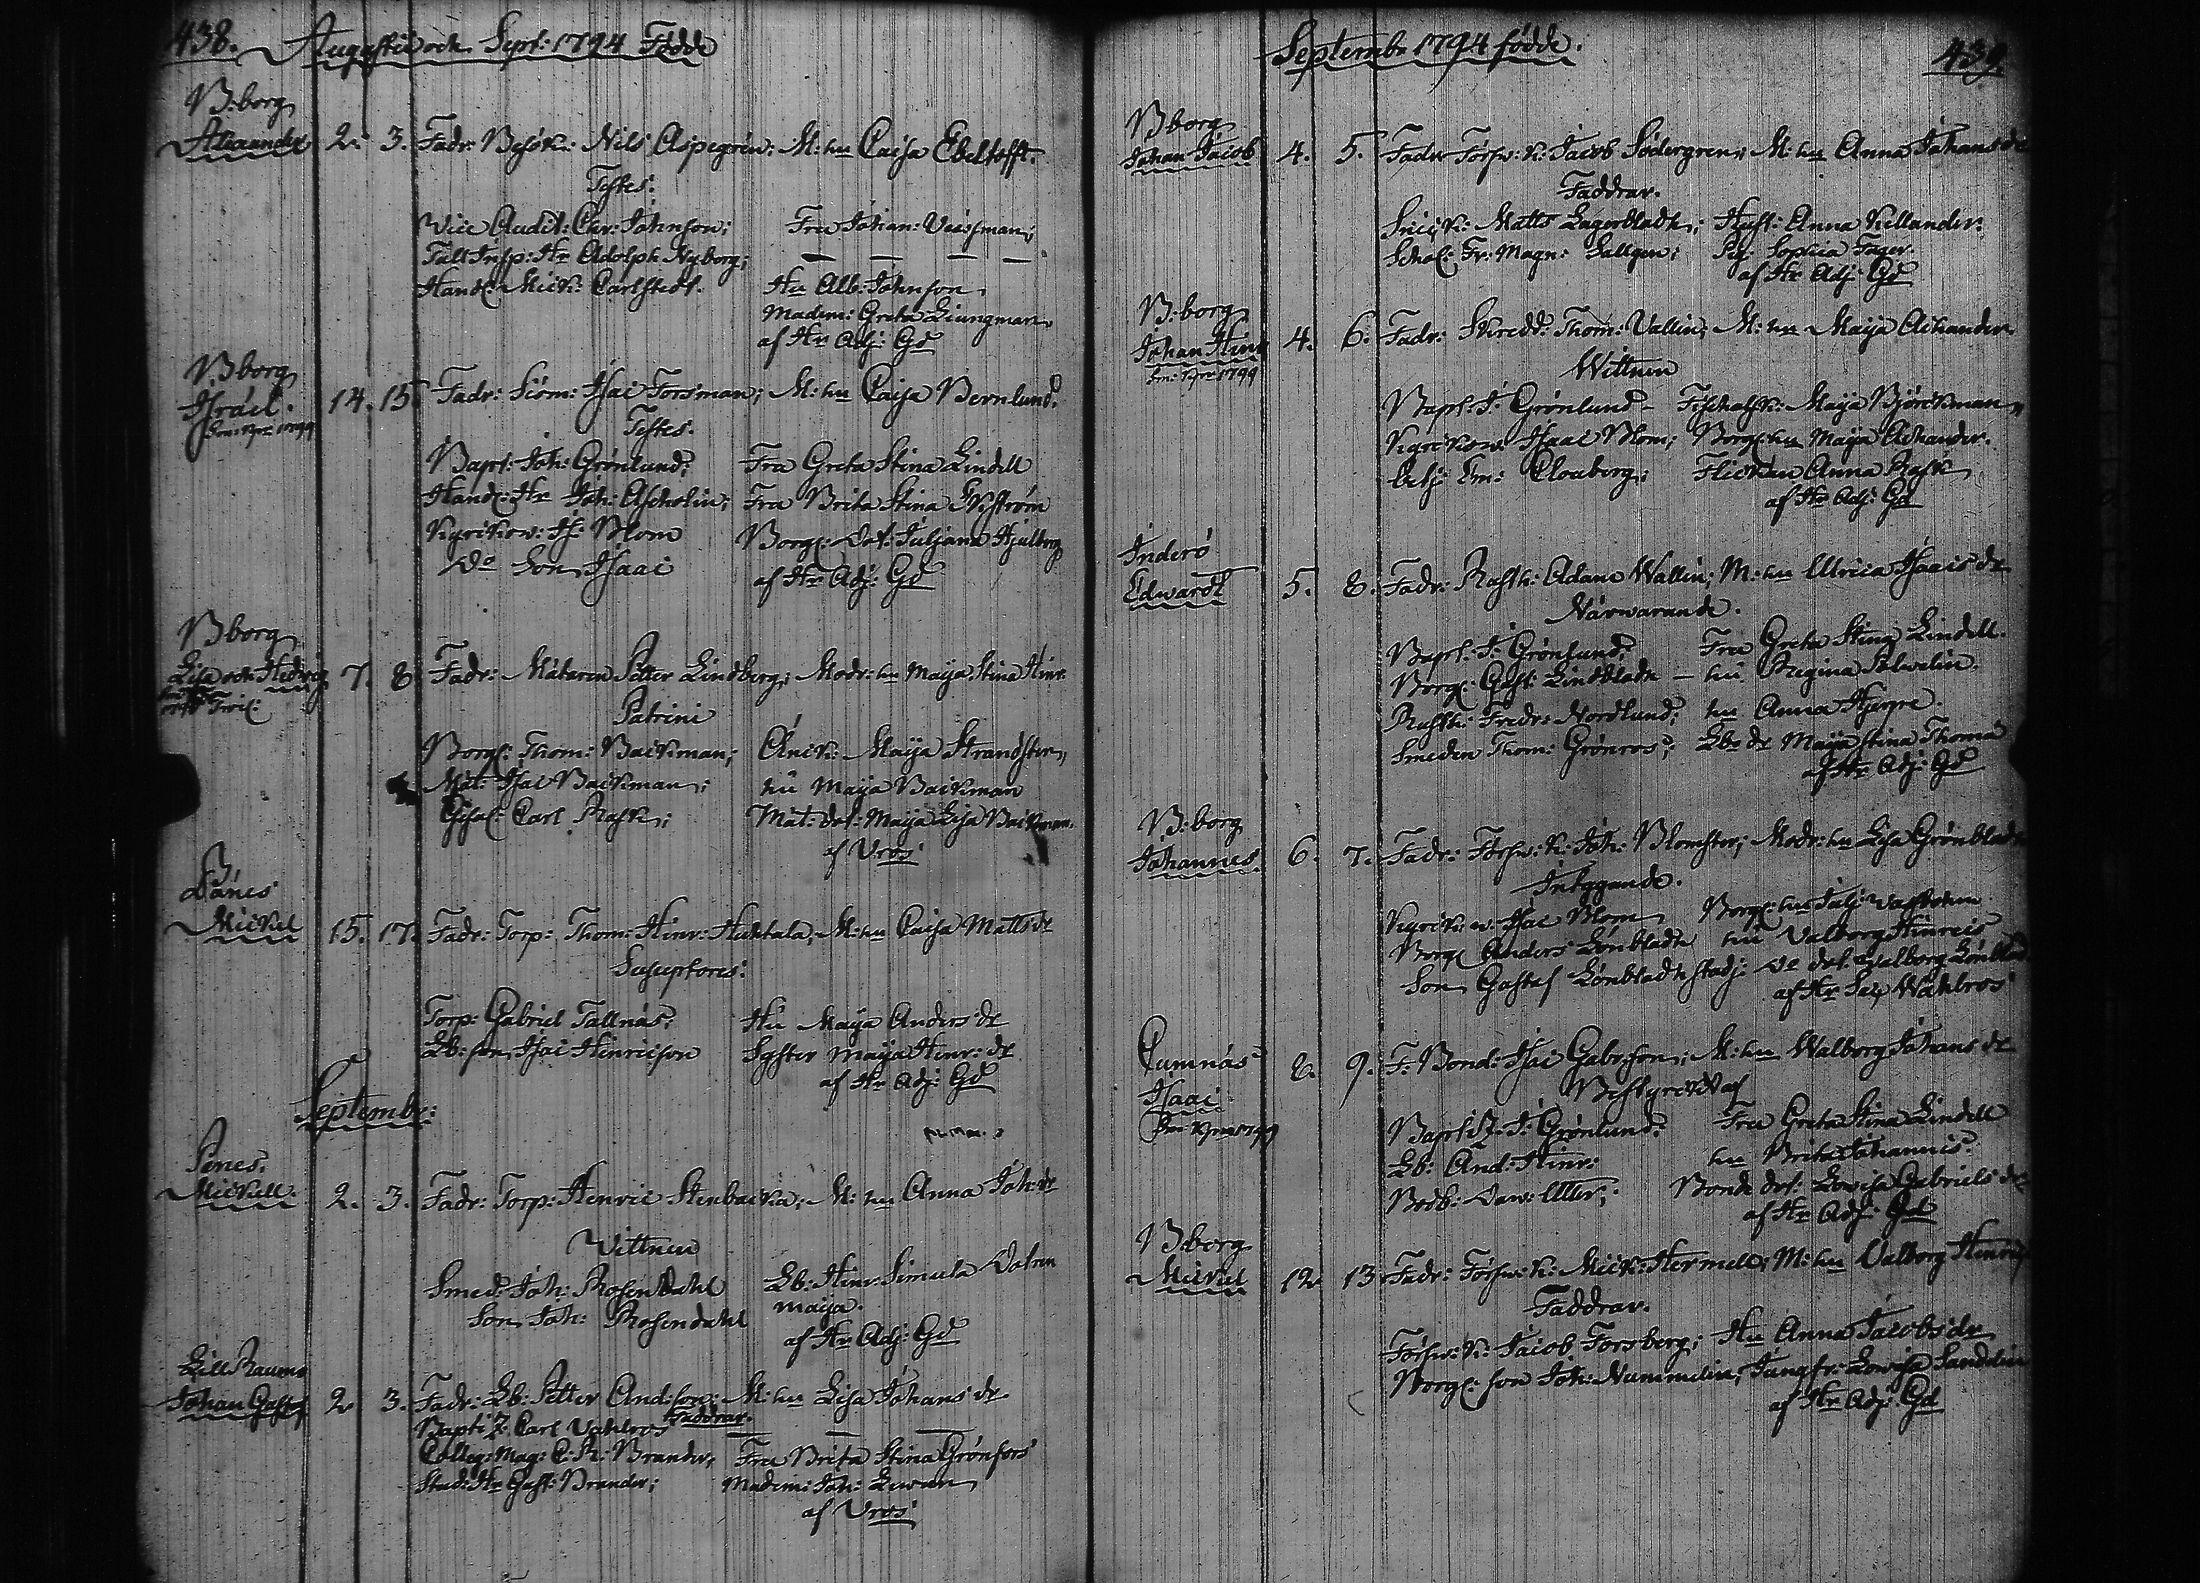 438. Augusti och Sept: 1794 Födde
B:borg
Alexander 2. 3. Fadr: Besök: Nils Aspegrén: M: hu Caisa Ebeltofft.
Testes.
Vice Audit: Chr: Johnson; Fru Johan:
Tull Insp: Hr Adolph Nyborg; — — — —
Handl: Mick: Carlstedt. Hu Alb: Johnson
Madem: Greta Liungman
af Hr Adj: Gd
B borg
Israel. 14. 15. Fadr: Siöm: Isac Forsman; M: hu Caisa Bernlund.
1799
Testes.
Bapt: Joh: Grönlund; Fru Greta Stina Lindell
Handl: Hr Joh: Ascholin; Fru Brita Stina Ekström
Kyrckow: Is: Blom Borgl: Dot: Juljana Hjulberg
Do Son Isaac af Hr Adj: Gd
B borg
Lisa och Hedvig 7. 8 Fadr: Mätaren Petter Lindberg; Modr: hu Maija Stina Hinr:
Patrini
Borgl: Thom: Backman; Änck: Maija Strandster
Mät: Isac Backman; hu Maija Backman
Gesäl: Carl Rask; Mät: dot: Maija Lisa Backman.
af Vros
Dänes
Mickel 15. 17. Fadr: Torp: Thom: Hinr: Huhtala; M: hu Caisa Matts dr
Susceptores:
Torp: Gabriel Tallnäs; Hu Maija Anders dr
Lb: son Isac Hinricson Syster Maija Hinr: dr
af Hr Adj: Gd
Septembr:
Penes.
Mickell. 2. 3. Fadr: Torp: Henric Stenbacka; M: hu Anna Joh: dr
Wittnen
Smed: Joh: Rosendahl Lb: Hinr: Simula Dotren
Son Joh: Rosendahl Maija.
af Hr Adj: Gd
Lill Raumo
Johan Gustaf 2 3. Fadr: Lb: Petter And:son; M: hu Lisa Johans dr
Faddrar.
Bapti Z. Carl Vahlros — — —
Colleg: Mag: C: R: Brander, Fru Brita Stina Grönfors
Stud: Hr Gust: Brander; Madem: Joh:
af Vros
Septembr 1794 födde. 439.
B borg
Johan Jacob 4. 5. Fadr Försw: K: Jacob Södergren; M: hu Anna Johans dr
Faddrar.
Snick: Matts Lagerbladh; Hust: Anna Kellander:
Schol: Fr: Magn: Gallgen; Pig: Sophia Fager
af Hr Adj: Gd
B:borg
Johan Hinr 4. 6. Fadr: Skredd: Thom: Vallin; M: hu Maija Achander
1799
Wittnen
Bapt: J: Grönlund – Maija Björckman
Kyrckow: Isaac Blom; Borgl: hu Maija Achander.
Adj: Em: Cloaberg; Flickan Anna Rask
af Hr Adj: Gd
Inderö
Edwardt 5. 8. Fadr: Rusth: Adam Wallin; M: hu Ulrica Isacis dr
Närwarande.
Bapt: J: Grönlund; Fru Greta Stina Lindell.
Borgl: Gust: Lindbladh – hu Regina Palmelin.
Rusth: Fredr: Nordlund; hu Anna Hjerpe.
Smeden Thom: Grönros; Lbs dr Maija Stina Thoma
af Hr Adj: Gd
B:borg
Johannes. 6. 7. Fadr: Försw: K: Joh: Blomster; Modr: hu Lisa Grönbladh
Intygande.
Kyrck: w: Isac Blom Borgl: hu Julj: Vastbohm
Borgl Anders Lönbladh hu Valborg Hinrics
Son Gustaf Lönbladh Do dot: Valborg Lönblad
af Hr Sac Wahlros
Cumnäs
Isaac 8. 9. F: Bond: Isac Gabr:son; M: hu Walborg Johans dr
1799
Bestyrckt af
Bapt: Z. J: Grönlund. Fru Greta Stina Lindell
Lb: And: Hinr: hu Brita Johannis.
Bodb: Daw: Utter; Bonde dot: Lowisa Gabriels dr
af Hr Adj: Gd
B:borg
Mickel 12 13 Fadr: Försw: K: Mick: Hermell; M: hu Valborg Henric
Faddrar.
Försw: K: Jacob Forsberg; Hu Anna Jacobs dr
Borgl: son Joh: Nummelin, Jungfr: Lowisa Sandelin
af Hr Adj: Gd